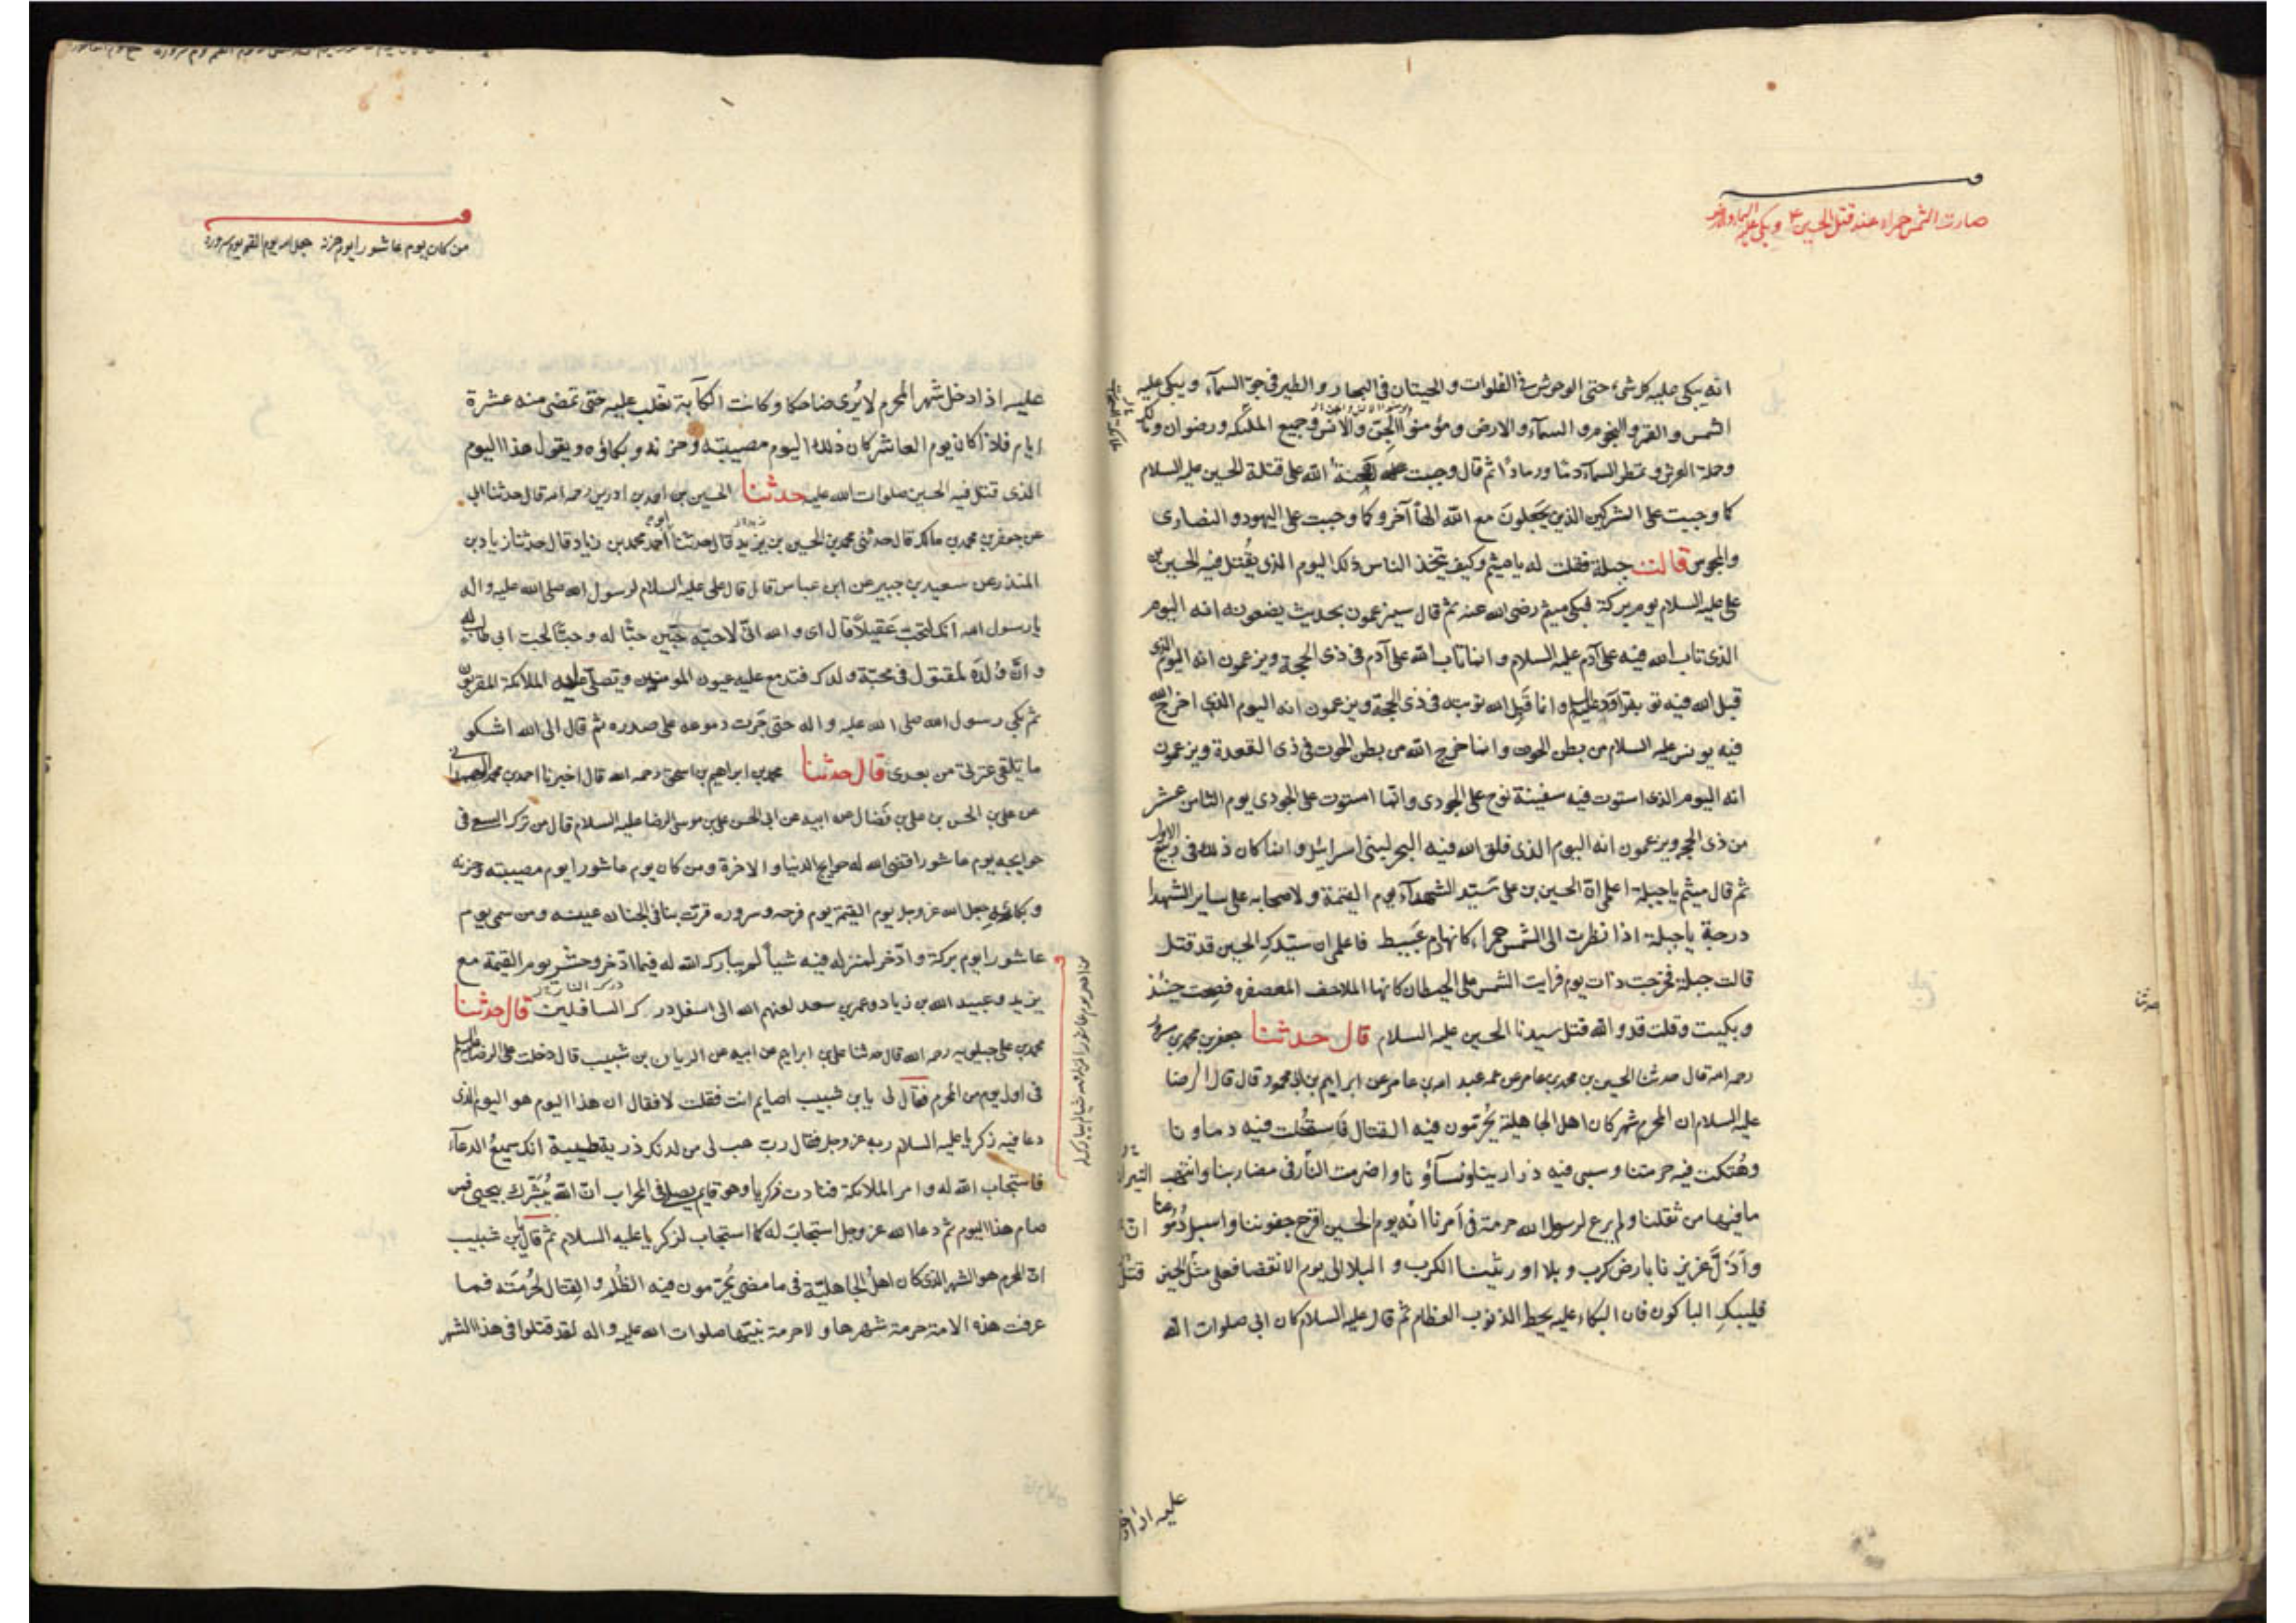 صارت الشمس حمراء عند قتل الحسين ع وبكى عليه السماء والارض
انه يبكى عليه كل شئ حتى الوحوش فى الفلوات و الحيتان فى البحار و الطير فى جو السمآء ويبكى عليه
الشمس و القمر و النجوم و السمآء و الارض و مؤمنوا الجن والانس وجميع الملئكه ورضوان ومالك
وحملة العرش و تمطر السمآء دما ورمادا ثم قال وجبت لعنة الله على قتلة الحسين عليه السلام
كما وجبت على المشركين الذين يجعلون مع الله الها آخر وكما وجبت على اليهود و النصارى
والمجوس قالت جبلة فقلت له يا ميثم وكيف يتخذ الناس ذلك اليوم الذى يقتل فيه الحسين بن
على عليه السلام يوم بركة فبكى ميثم رضى الله عنه ثم قال سيزعمون بحديث يضعونه انه اليوم
الذى تاب الله فيه على آدم عليه السلام و انما تاب الله على آدم فى ذى الحجة ويزعمون انه اليوم الذى
قبل الله فيه توبة داود عليه السلم و انما قبل الله توبته فى ذى الحجة ويزعمون انه اليوم الذى اخرج الله
فيه يونس عليه السلام من بطن الحوت و انما خرج الله من بطن الحوت فى ذى القعدة ويزعمون
انه اليوم الذى استوت فيه سفينة نوح على الجودى وانما استوت على الجودى يوم الثامن عشر
من ذى الحجه ويزعمون انه اليوم الذى فلق الله فيه البحر لبنى اسرائل و انما كان ذلك فى ربيع الاول
ثم قال ميثم يا جبلة اعلمى ان الحسين بن على سيد الشهدآء يوم القيمة و لاصحابه على ساير الشهدا
درجة يا جبلة اذا نظرت الى الشمس حمراء كانها دم عبيط فاعلمى ان سيدك الحسين قد قتل
قالت جبلة فخرجت ذات يوم فرايت الشمس على الحيطان كانها الملاحف المعصفره فصحت حينئذ
و بكيت وقلت قد و الله قتل سيدنا الحسين عليه السلام قال حدثنا جعفر بن محمد بن مسرور
رحمه الله قال حدثنا الحسين بن محمد بن عامر عن عمه عبد الله بن عامر عن ابراهيم بن ابى محمود قال قال الرضا
عليه السلام ان المحرم شهر كان اهل الجاهلية يحرمون فيه القتال فاستحلت فيه دماونا
وهتكت فيه حرمتنا و سبى فيه ذرارينا ونسآؤنا و اضرمت النار فى مضاربنا وانتهب
ما فيها من ثقلنا و لم يرع لرسول الله حرمة فى امرنا ان يوم الحسين اقرح جفوننا و اسبل دموعنا
و اذل عزيزنا بارض كرب و بلا اورثتنا الكرب و البلا الى يوم الانقضا فعلى مثل الحسين
فليبك الباكون فان البكاء عليه يحط الذنوب العظام ثم قال عليه السلام كان ابى صلوات الله
عليه اذا دخل
من كان يوم عاشورا يوم حزنه جعل الله يوم القيمة يوم سروره
عليه اذا دخل شهر المحرم لا يرى ضاحكا وكانت الكآبة تغلب عليه حتى تمضى منه عشرة
ايام فاذا كان يوم العاشر كان ذلك اليوم مصيبته وحزنه و بكاؤه ويقول هذا اليوم
الذى قتل فيه الحسين صلوات الله عليه حدثنا الحسين بن احمد بن ادريس رحمه الله قال حدثنا ابى
عن جعفر بن محمد بن مالك قال حدثنى محمد بن الحسين بن يزيد قال حدثنا ابو احمد محمد بن زياد قال حدثنا زياد بن
المنذر عن سعيد بن جبير عن ابن عباس قال قال على عليه السلام لرسول الله صلى الله عليه واله
يا رسول الله انك لتحب عقيلا قال اى و الله انى لاحبه حبين حبا له وحبا لحب ابى طالب له
و ان ولده لمقتول فى محبة ولدك فتدمع عليه عيون المومنين وتصلى عليه الملائكة المقربون
ثم بكى رسول الله صلى الله عليه واله حتى جرت دموعه على صدره ثم قال الى الله اشكو
ما يلقى عترتى من بعدى قال حدثنا محمد بن ابراهيم بن اسحق رحمه الله قال اخبرنا احمد بن محمد الهمدانى
عن على بن الحسن بن على بن فضال عن ابيه عن ابى الحسن على بن موسى الرضا عليه السلام قال من ترك السعى فى
حوايجه يوم عاشورا قضى الله له حوايج الدنيا و الاخرة ومن كان يوم عاشورا يوم مصيبته وحزنه
و بكائه جعل الله عز وجل يوم القيمة يوم فرحه وسروره قرت بنا فى الجنان عينه ومن سمى يوم
عاشورا يوم بركة وادخر لمنزله فيه شيأ لم يبارك الله له فيما ادخر وحشر يوم القيمة مع
يزيد و عبيد الله بن زياد و عمر بن سعد لعنهم الله الى اسفل درك السافلين قال حدثنا
محمد بن على جيلويه رحمه الله قال حدثنا على بن ابراهيم عن ابيه عن الريان بن شبيب قال دخلت على الرضا عليه السلم
فى اول يوم من المحرم فقال لى يا بن شبيب اصايم انت فقلت لا فقال ان هذا اليوم هو اليوم الذى
دعا فيه زكريا عليه السلام ربه عز وجل فقال رب هب لى من لدنك ذرية طيبة انك سميع الدعآء
فاستجاب الله له و امر الملائكة فنادت زكريا وهو قايم يصلى فى المحراب ان الله يبشرك بيحيى فمن
صام هذا اليوم ثم دعا الله عز وجل استجاب له كما استجاب لزكريا عليه السلام ثم قال يا بن شبيب
ان المحرم هو الشهر الذى كان اهل الجاهلية فى ما مضى يحرمون فيه الظلم و القتال لحرمته فما
عرفت هذه الامة حرمة شهرها و لا حرمة نبيها صلوات الله عليه واله لقد قتلوا فى هذا الشهر